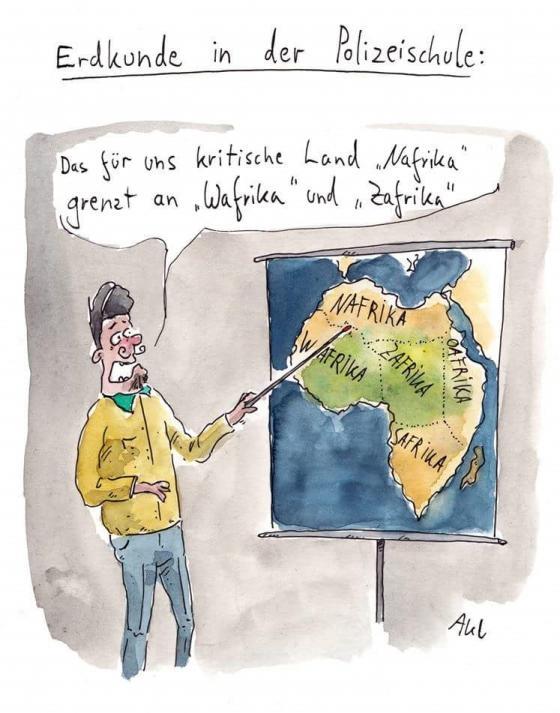 Erdkunde in der Polizeischule:
Das für uns kritische Land „Nafrika"
grenzt an „Wafrika" und „Zafrika"
NAFRIKA
WAFRIKA
ZAFRIKA
OAFRIKA
SAFRIKA
AKL